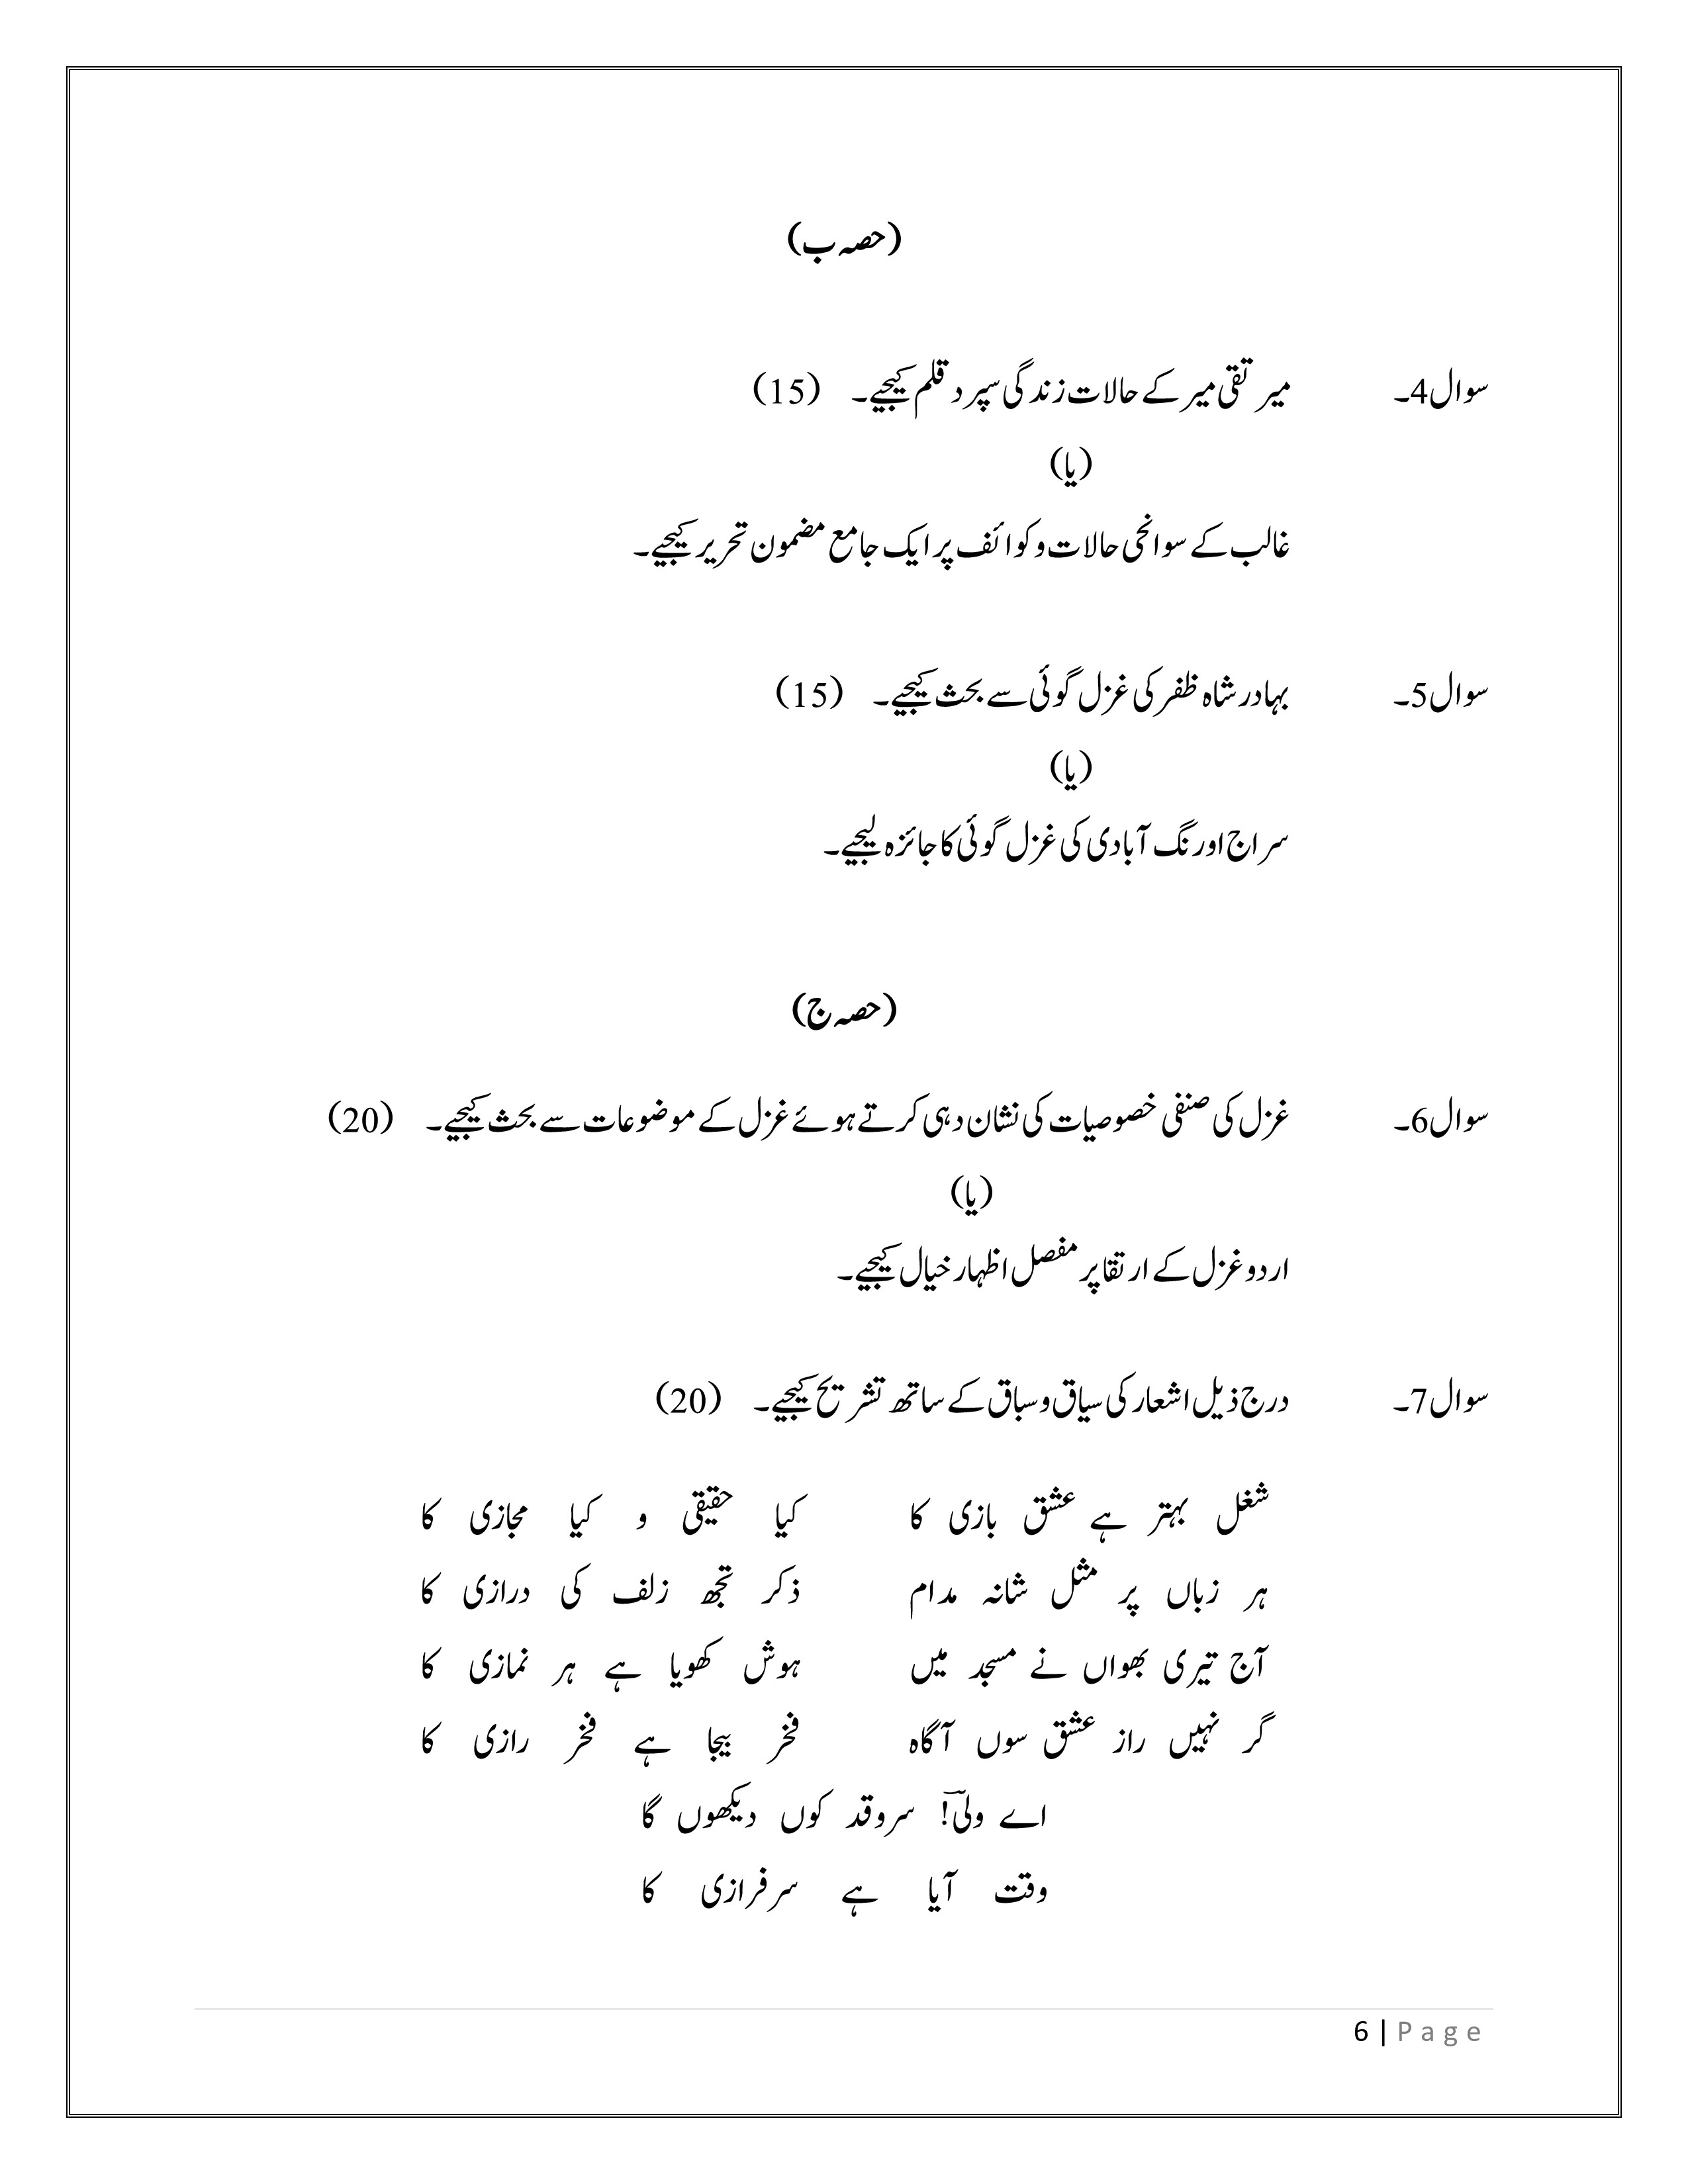 (حصہ ب)
سوال4۔ میر تقی میر کے حالات زندگی سپرد قلم کیجیے۔ (15)
(یا)
غالب کے سوانحی حالات و کوائف پر ایک جامع مضمون تحریر کیجیے۔
سوال5۔ بہادر شاہ ظفر کی غزل گوئی سے بحث کیجیے۔ (15)
(یا)
سراج اورنگ آبادی کی غزل گوئی کا جائزہ لیجیے۔
(حصہ ج)
سوال6۔ غزل کی صنفی خصوصیات کی نشان دہی کرتے ہوئے غزل کے موضوعات سے بحث کیجیے۔ (20)
(یا)
اردو غزل کے ارتقا پر مفصل اظہار خیال کیجیے۔
سوال7۔ درج ذیل اشعار کی سیاق و سباق کے ساتھ تشریح کیجیے۔ (20)
شغل بہتر ہے عشق بازی کا کیا حقیقی و کیا مجازی کا
ہر زباں پر مثل شانہ مدام ذکر تجھ زلف کی درازی کا
آج تیری بھواں نے مسجد میں ہوش کھویا ہے ہر نمازی کا
گر نہیں راز عشق سوں آگاہ فخر بیجا ہے فخر رازی کا
اے ولیؔ! سروقد کوں دیکھوں گا
وقت آیا ہے سرفرازی کا
6 | Page